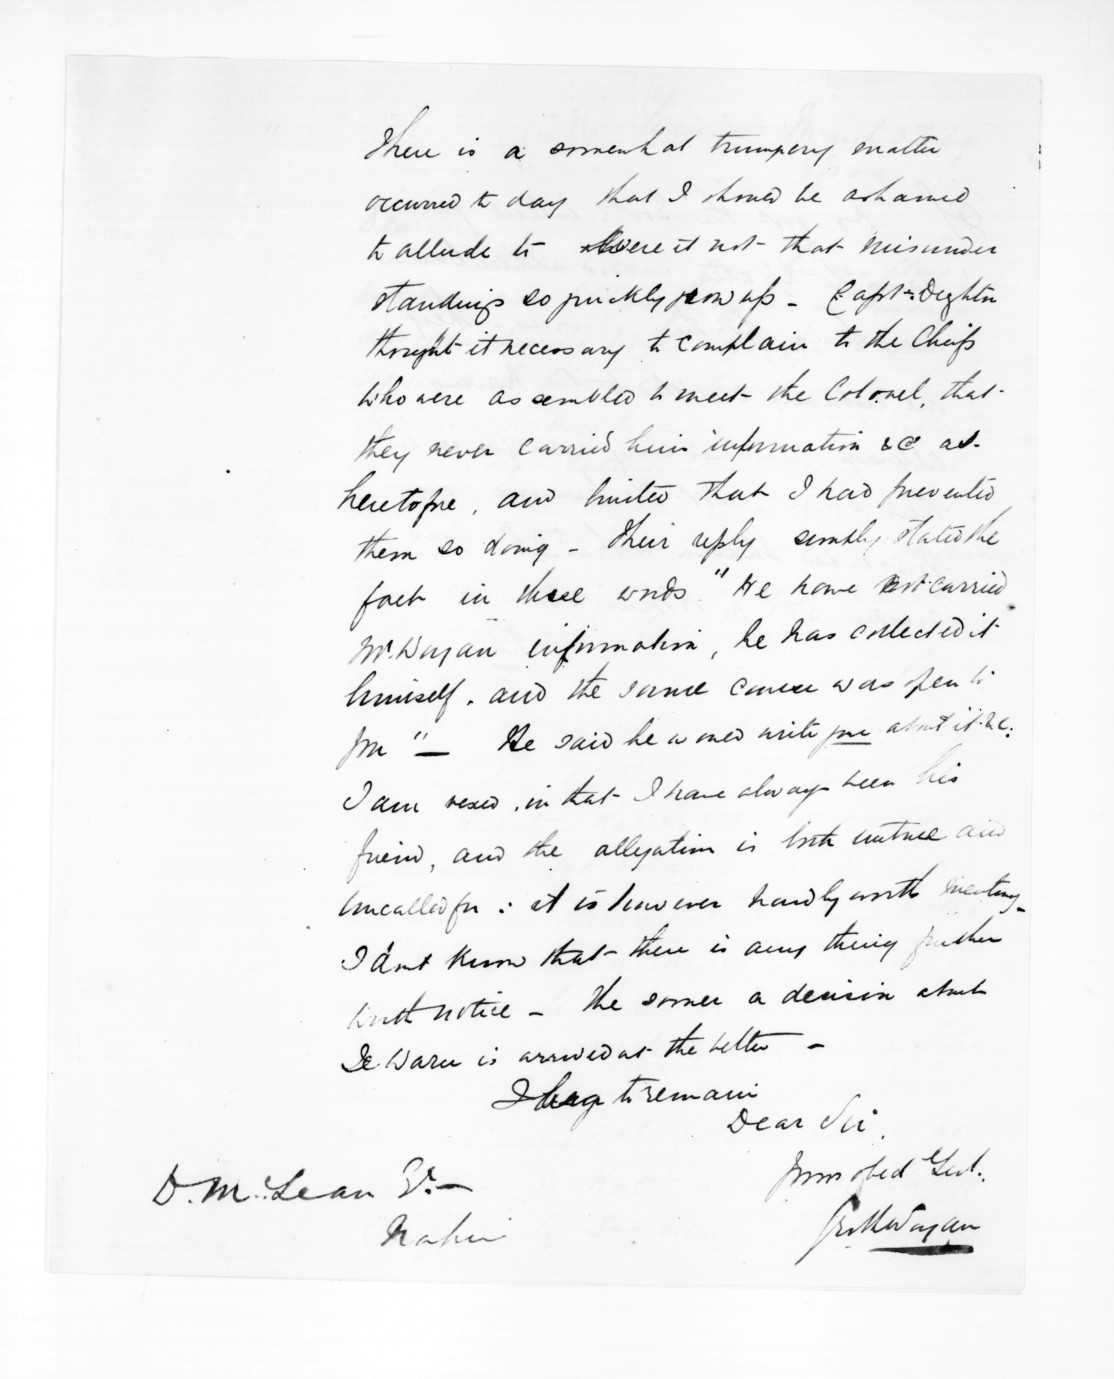 There is a somewhat trumpery matter
occurred to day that I should be ashamed
to allude to were it not that misunder
standings so quickly grow up - Capt. Deighton
thought it necessary to complain to the Chiefs
who were assembled to meet the Colonel, that
they never carried him information &c as
heretofore, and hinted that I had prevented
them so doing - Their reply simply stated the
fact in these words "We have not carried
Mr. Worgan information, he has collected it
himself. and the same course was open to
you" - He said he would write you about it &c.
I am vexed, in that I have always been his
friend, and the allegation is both untrue and
uncalled for : it is however hardly worth
I don't know that there is any thing further
worth notice - The sooner a decision about
Te Waru is arrived at the better -
I beg to remain
Dear Sir.
Yours obed Servt.
Worgan
D. McLean Esq. -
Napier